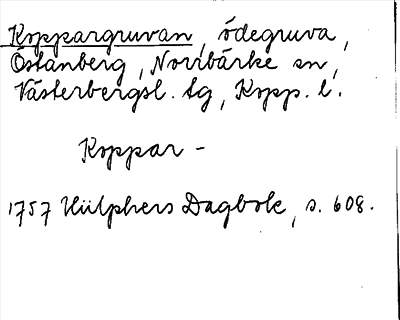 Koppargruvan, ödegruva,
Östanberg, Norrbärke sn,
Västerbergsl. tg, Kopp. l.
Koppar -
1757 Hülphers Dagbok, s. 608.